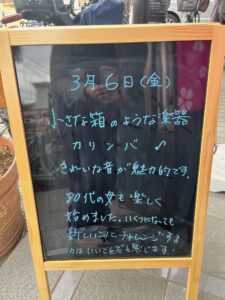 3月6日(金)
小さな箱のような楽器
カリンバ ♪
きれいな音が魅力的です。
80代の母も楽しく
始めました。いくつになっても
新しいことにチャレンジする
のはいいことだと感じます!